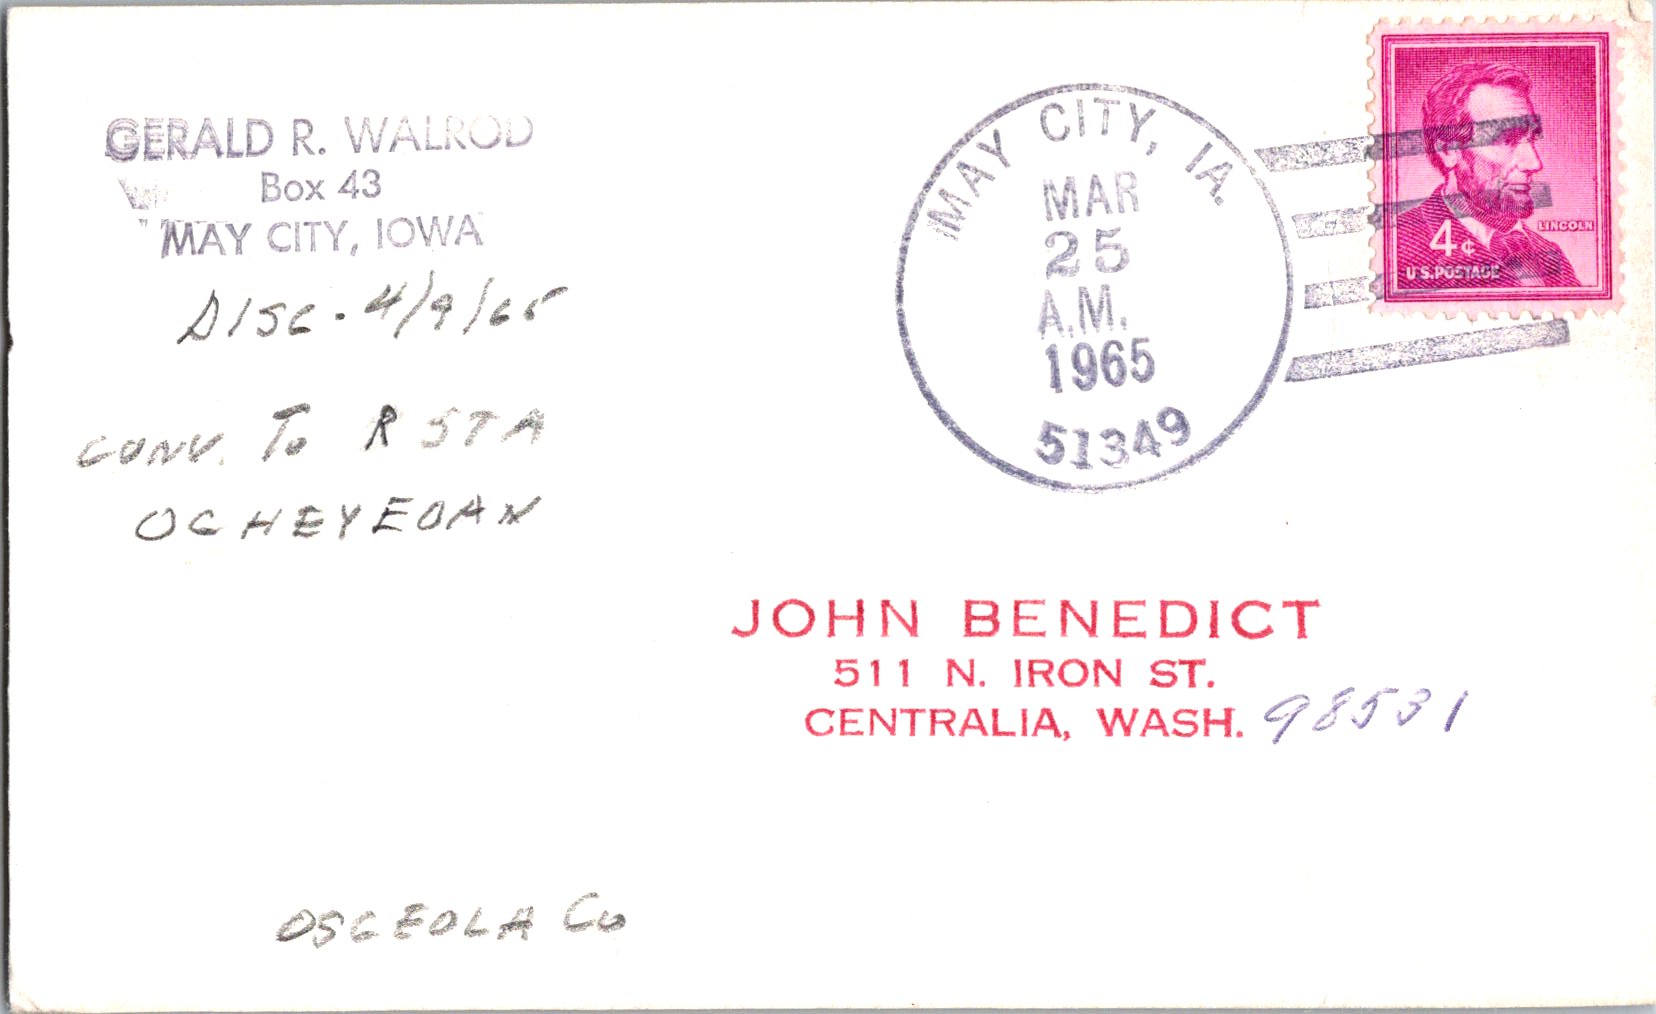 GERALD R. WALROD
Box 43
MAY CITY, IOWA
DISC. 4/9/65
CONV. To R STA
OCHEYEDAN
OSCEOLA Co
MAY CITY, IA.
MAR
25
A.M.
1965
51349
LINCOLN
4¢
U.S. POSTAGE
JOHN BENEDICT
511 N. IRON ST.
CENTRALIA, WASH. 98531